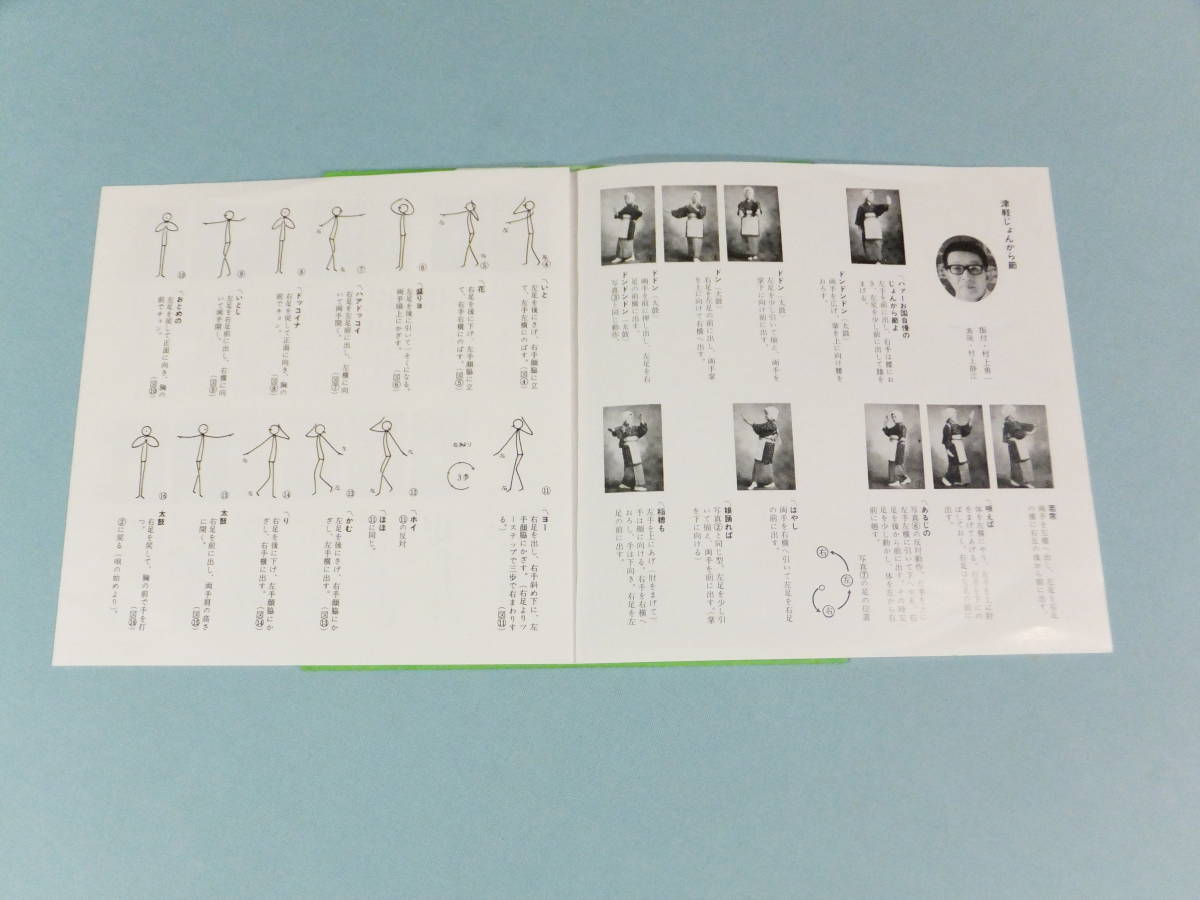 津軽じょんから節
振付・村上勇一
表現・村上静江
〽ハァーお国自慢の
じょんから節よ
左手を前に出し、右手は腰にお
き、左足を少し前に出して膝を
まげる。
ドンドンドン（太鼓）
両手を広げ、掌を上に向け腰を
おろす。
ドン（太鼓）
左足を少し引いて揃え、両手を
掌下に向け前に出す。
ドン（太鼓）
右足を左足の前に出し、両手掌
を上に向けて右横へ出す。
ドドン（太鼓）
両手を前に押し出し、左足を右
足の前横に出す。
ドンドンドン（太鼓）
写真③と同じ動作。
若衆
〽唄えば
〽あるじの
写真⑥の反対動作
写真⑦の足の位置
右
左
右
〽はやし
両手を右横へ引いて左足を右足
の前に出す。
〽娘踊れば
写真②と同じ型。左足を少し引
いて揃え、両手を前に出す。（掌
を下に向ける）
〽稲穂も
左手を上にあげ（肘をまげて）
手は顔に向ける。右手を右横へ
おろし、手は下向き、右足を左
足の前に出す。
④
〽いと
左足を後にさげ、右手顔脇に立
て、左手左横にのばす。（図④）
⑤
花
右足を後に下げ、左手顔脇に立
て、右手右横にのばす。（図⑤）
⑥
〽盛りョ
左足を後に引いて一そくになる。
両手頭上にかざす。（図⑥）
⑦
〽ハアドッコイ
右足を左足前に出し、左横に向
いて両手開く。（図⑦）
⑧
〽ドッコイナ
右足を戻して正面に向き、胸の
前でチョン。（図⑧）
⑨
〽いとし
左足を右足前に出し、右横に向
いて両手開く。（図⑨）
⑩
〽おとめの
左足を戻して正面に向き、胸の
前でチョン。（図⑩）
⑪
〽ヨー
右足を出し、右手斜め下に、左
手顔脇にかざす。（右足よりツ
ーステップで三歩で右まわりす
る。）（図⑪）
右まわり
3歩
⑫
〽ホイ
⑪の反対
〽ほほ
⑪に同じ。
⑬
〽かむ
左足を後にさげ、右手顔脇にか
ざし、左手横に出す。（図⑬）
⑭
〽り
右足を後に下げ、左手顔脇にか
ざし、右手横に出す。（図⑭）
⑮
太鼓
右足を前に出し、両手肩の高さ
に開く。（図⑮）
⑯
太鼓
右足を戻して、胸の前で手を打
つ。（図⑯）
②に戻る（唄の始めより）。